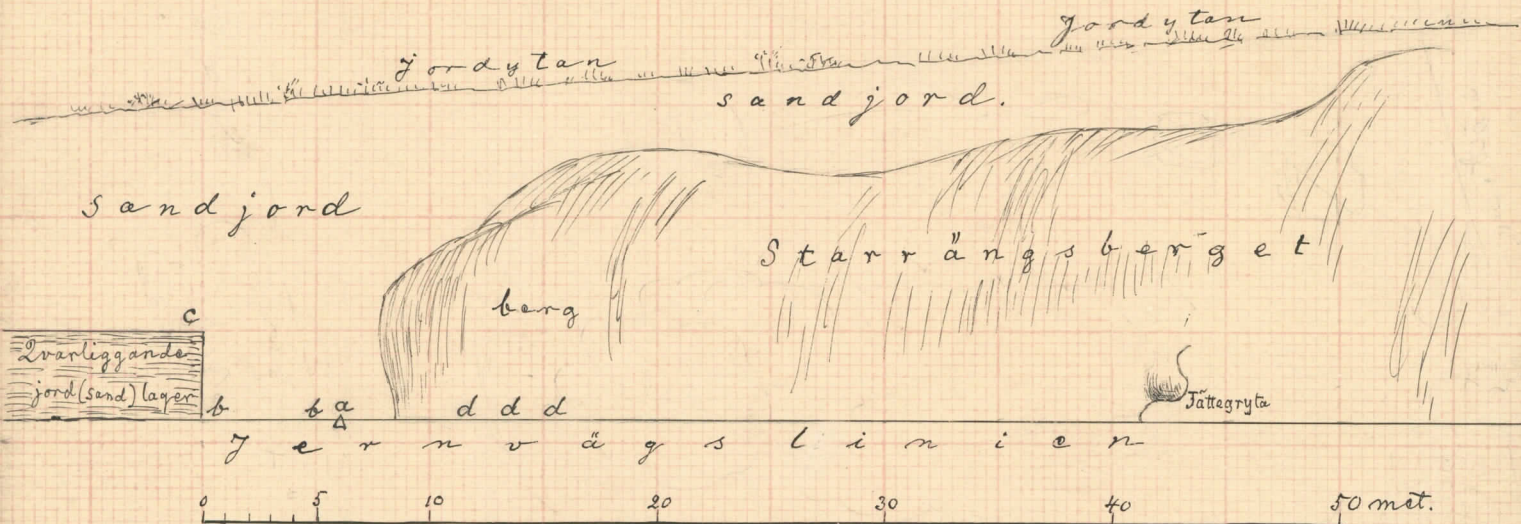 Jordytan
Jordytan
sandjord.
Sandjord
Starrängsberget
berg
c
Qvarliggande
jord(sand)lager
b b a d d d
Jättegryta
Jernvägslinien
0 5 10 20 30 40 50 met.